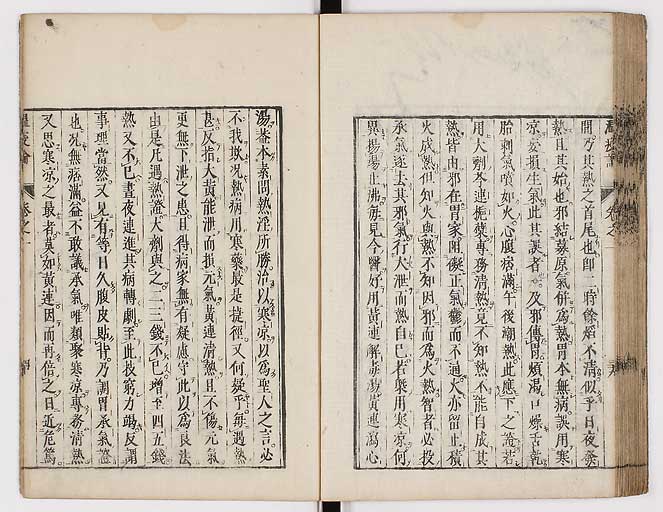 間乃其熱之首尾也即二時餘焰不清似乎日夜發
熱且其始也邪結募原氣併爲熱胃本無病誤用寒
涼妄損生氣此其誤者一及邪傳胃煩渴口燥舌乾
胎刺氣噴如火心腹痞滿午後潮熱此應下之證若
用大劑芩連梔蘗專務清熱竟不知熱不能自成其
熱皆由邪在胃家阻礙正氣鬱而不通火亦留止積
火成熱但知火與熱不知因邪而爲火熱智者必投
承氣逐去其邪氣行火泄而熱自已若槩用寒涼何
異揚湯止沸每見今醫好用黃連解毒湯黃連瀉心
湯蓋本素問熱淫所勝治以寒涼以爲聖人之言必
不我欺况熱病用寒藥最是捷徑又何疑乎每遇熱
甚反指大黃能泄而損元氣黃連清熱且不傷元氣
更無下泄之患且得病家無有疑慮守此以爲良法
由是凡遇熱證大劑與之二三錢不已增至四五錢
熱又不已晝夜連進其病轉劇至此技窮力竭反謂
事理當然又見有等日久腹皮貼背乃調胃承氣證
也况無痞滿益不敢議承氣唯類聚寒涼專務清熱
又思寒涼之最者莫如黃連因而再倍之日近危篤